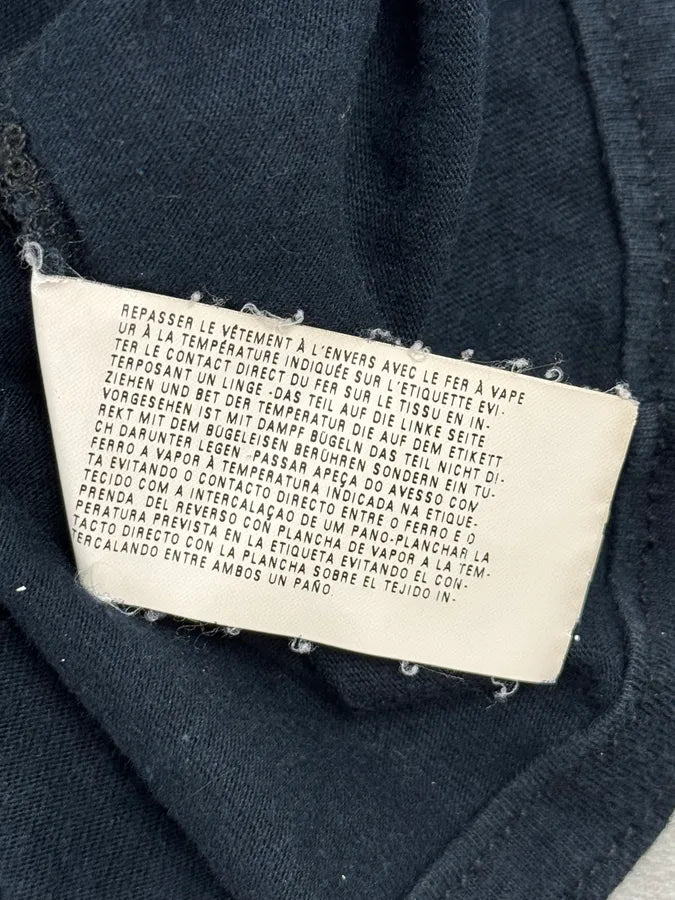 REPASSER LE VÊTEMENT À L'ENVERS AVEC LE FER À VAPE
UR À LA TEMPÉRATURE INDIQUÉE SUR L'ETIQUETTE EVI-
TER LE CONTACT DIRECT DU FER SUR LE TISSU EN IN-
TERPOSANT UN LINGE -DAS TEIL AUF DIE LINKE SEITE
ZIEHEN UND BET DER TEMPERATUR DIE AUF DEM ETIKETT
VORGESEHEN IST MIT DAMPF BÜGELN DAS TEIL NICHT DI-
REKT MIT DEM BÜGELEISEN BERÜHREN SONDERN EIN TU-
CH DARUNTER LEGEN -PASSAR APEÇA DO AVESSO COM
FERRO A VAPOR À TEMPERATURA INDICADA NA ETIQUE-
TA EVITANDO O CONTACTO DIRECTO ENTRE O FERRO E O
TECIDO COM A INTERCALAÇAO DE UM PANO-PLANCHAR LA
PRENDA DEL REVERSO COÑ PLANCHA DE VAPOR A LA TEM-
PERATURA PREVISTA EN LA ETIQUETA EVITANDO EL CON-
TACTO DIRECTO CON LA PLANCHA SOBRE EL TEJIDO IN-
TERCALANDO ENTRE AMBOS UN PAÑO.